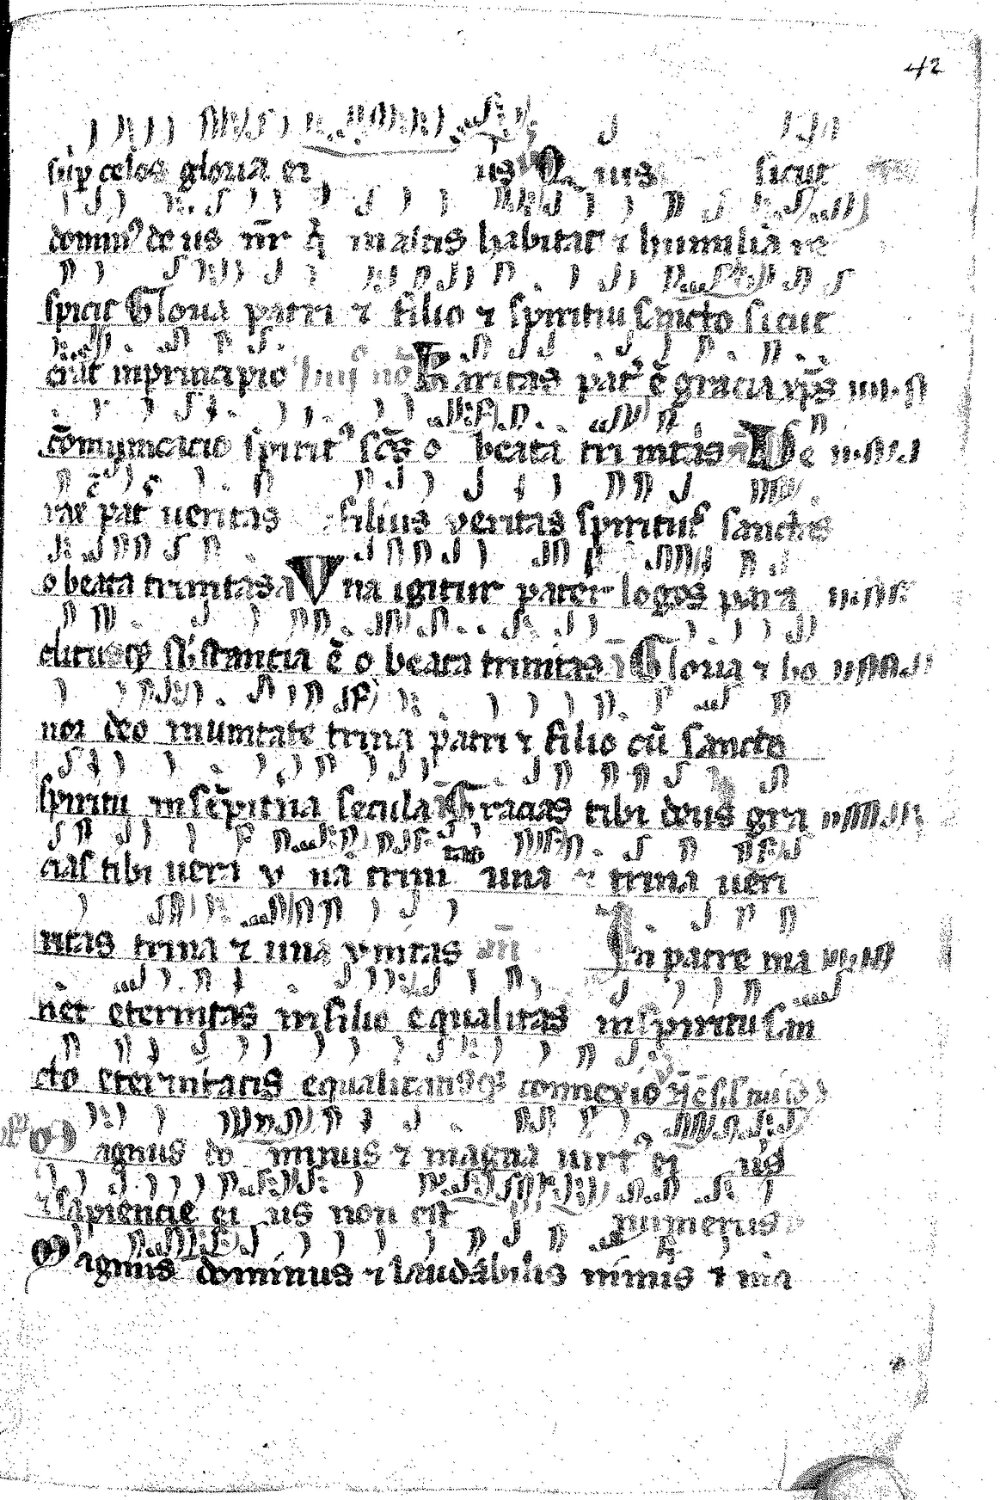 42
sup celos gloria ei us Quis sicut
domin' deus nr̄ q̄ in altis habitat ⁊ humilia re
spicit Gloria patri ⁊ filio ⁊ spiritui sancto sicut
erat inprincipio Karitas pat' ē gracia xp̄s
cōmunicacio spirit' sc̄s o beata trinitas Ve
rax pat' ueritas filius veritas spiritus sanctus
o beata trinitas a Vna igitur pater logos para
clitusq; sb'stancia ē o beata trinitas Gloria ⁊ ho
nor deo inunitate trina patri ⁊ filio cū sancto
spiritu in secula Gracias tibi deus gra
cias tibi ueri v na trini tas una ⁊ trina ueri
ritas trina ⁊ una vnitas an̄ In patre ma
net eternitas infilio equalitas inspiritu san
cto eternitatis equalitatisq; connexio
Magnus do minus ⁊ magna uirt' ei us
⁊ sapiencie ei us non est numerus
Magnus dominus ⁊ laudabilis nimis ⁊ ma